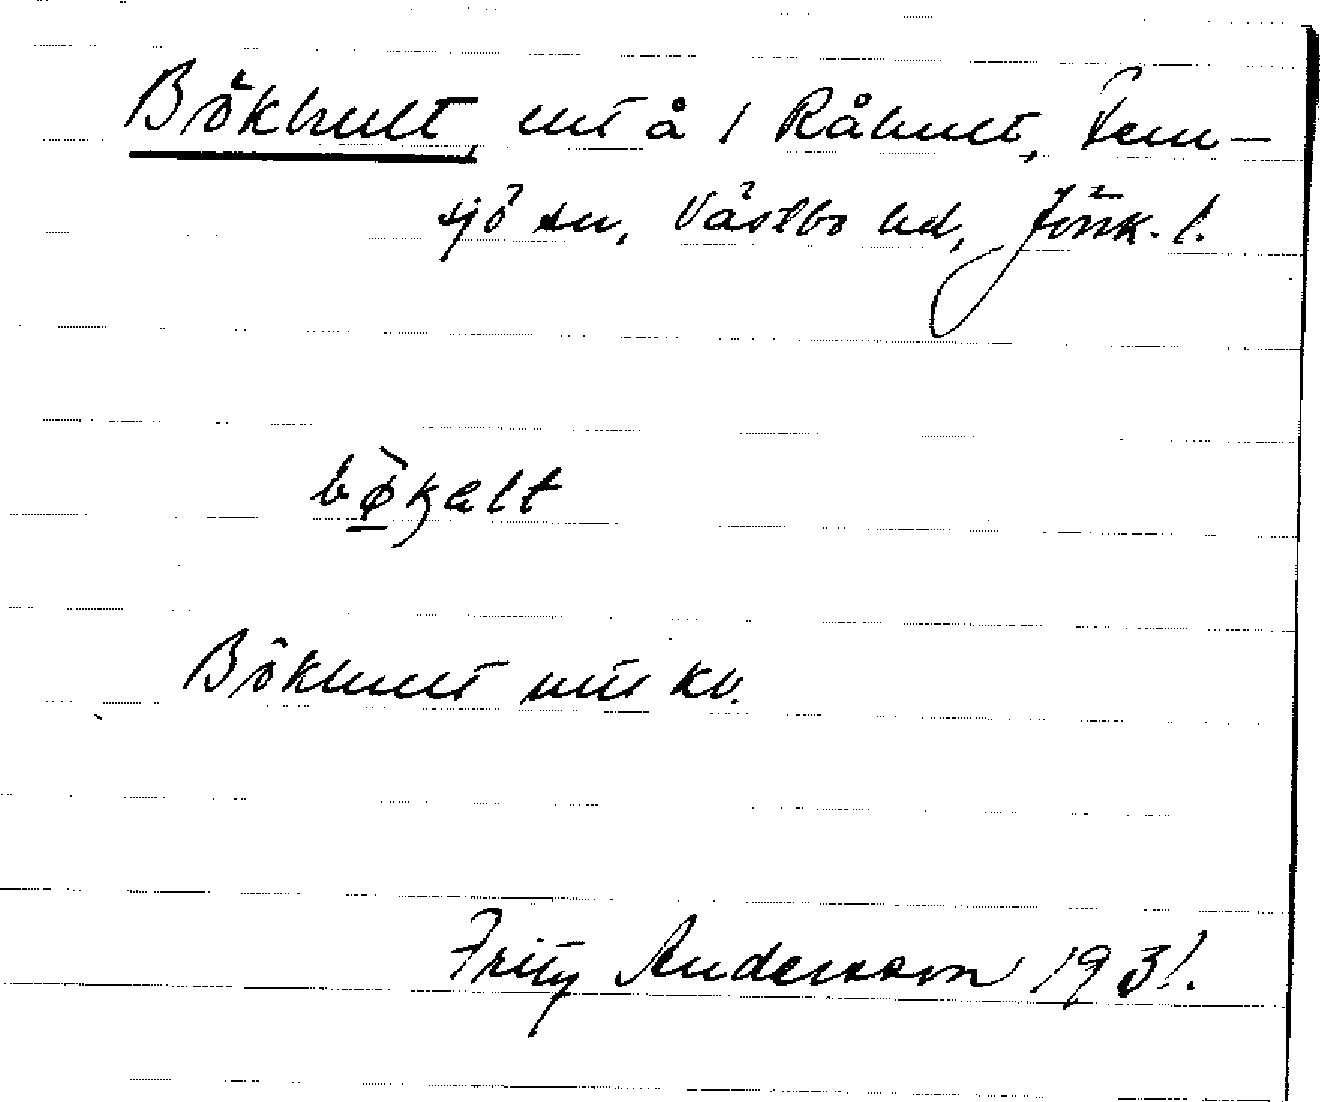 Bökhult, utå i Råhult, Fem-
sjö sn, Västbo hd, Jönk. l.
bø̱̀kalt
Bökhult utä kv.
Fritz Andersson 1931.